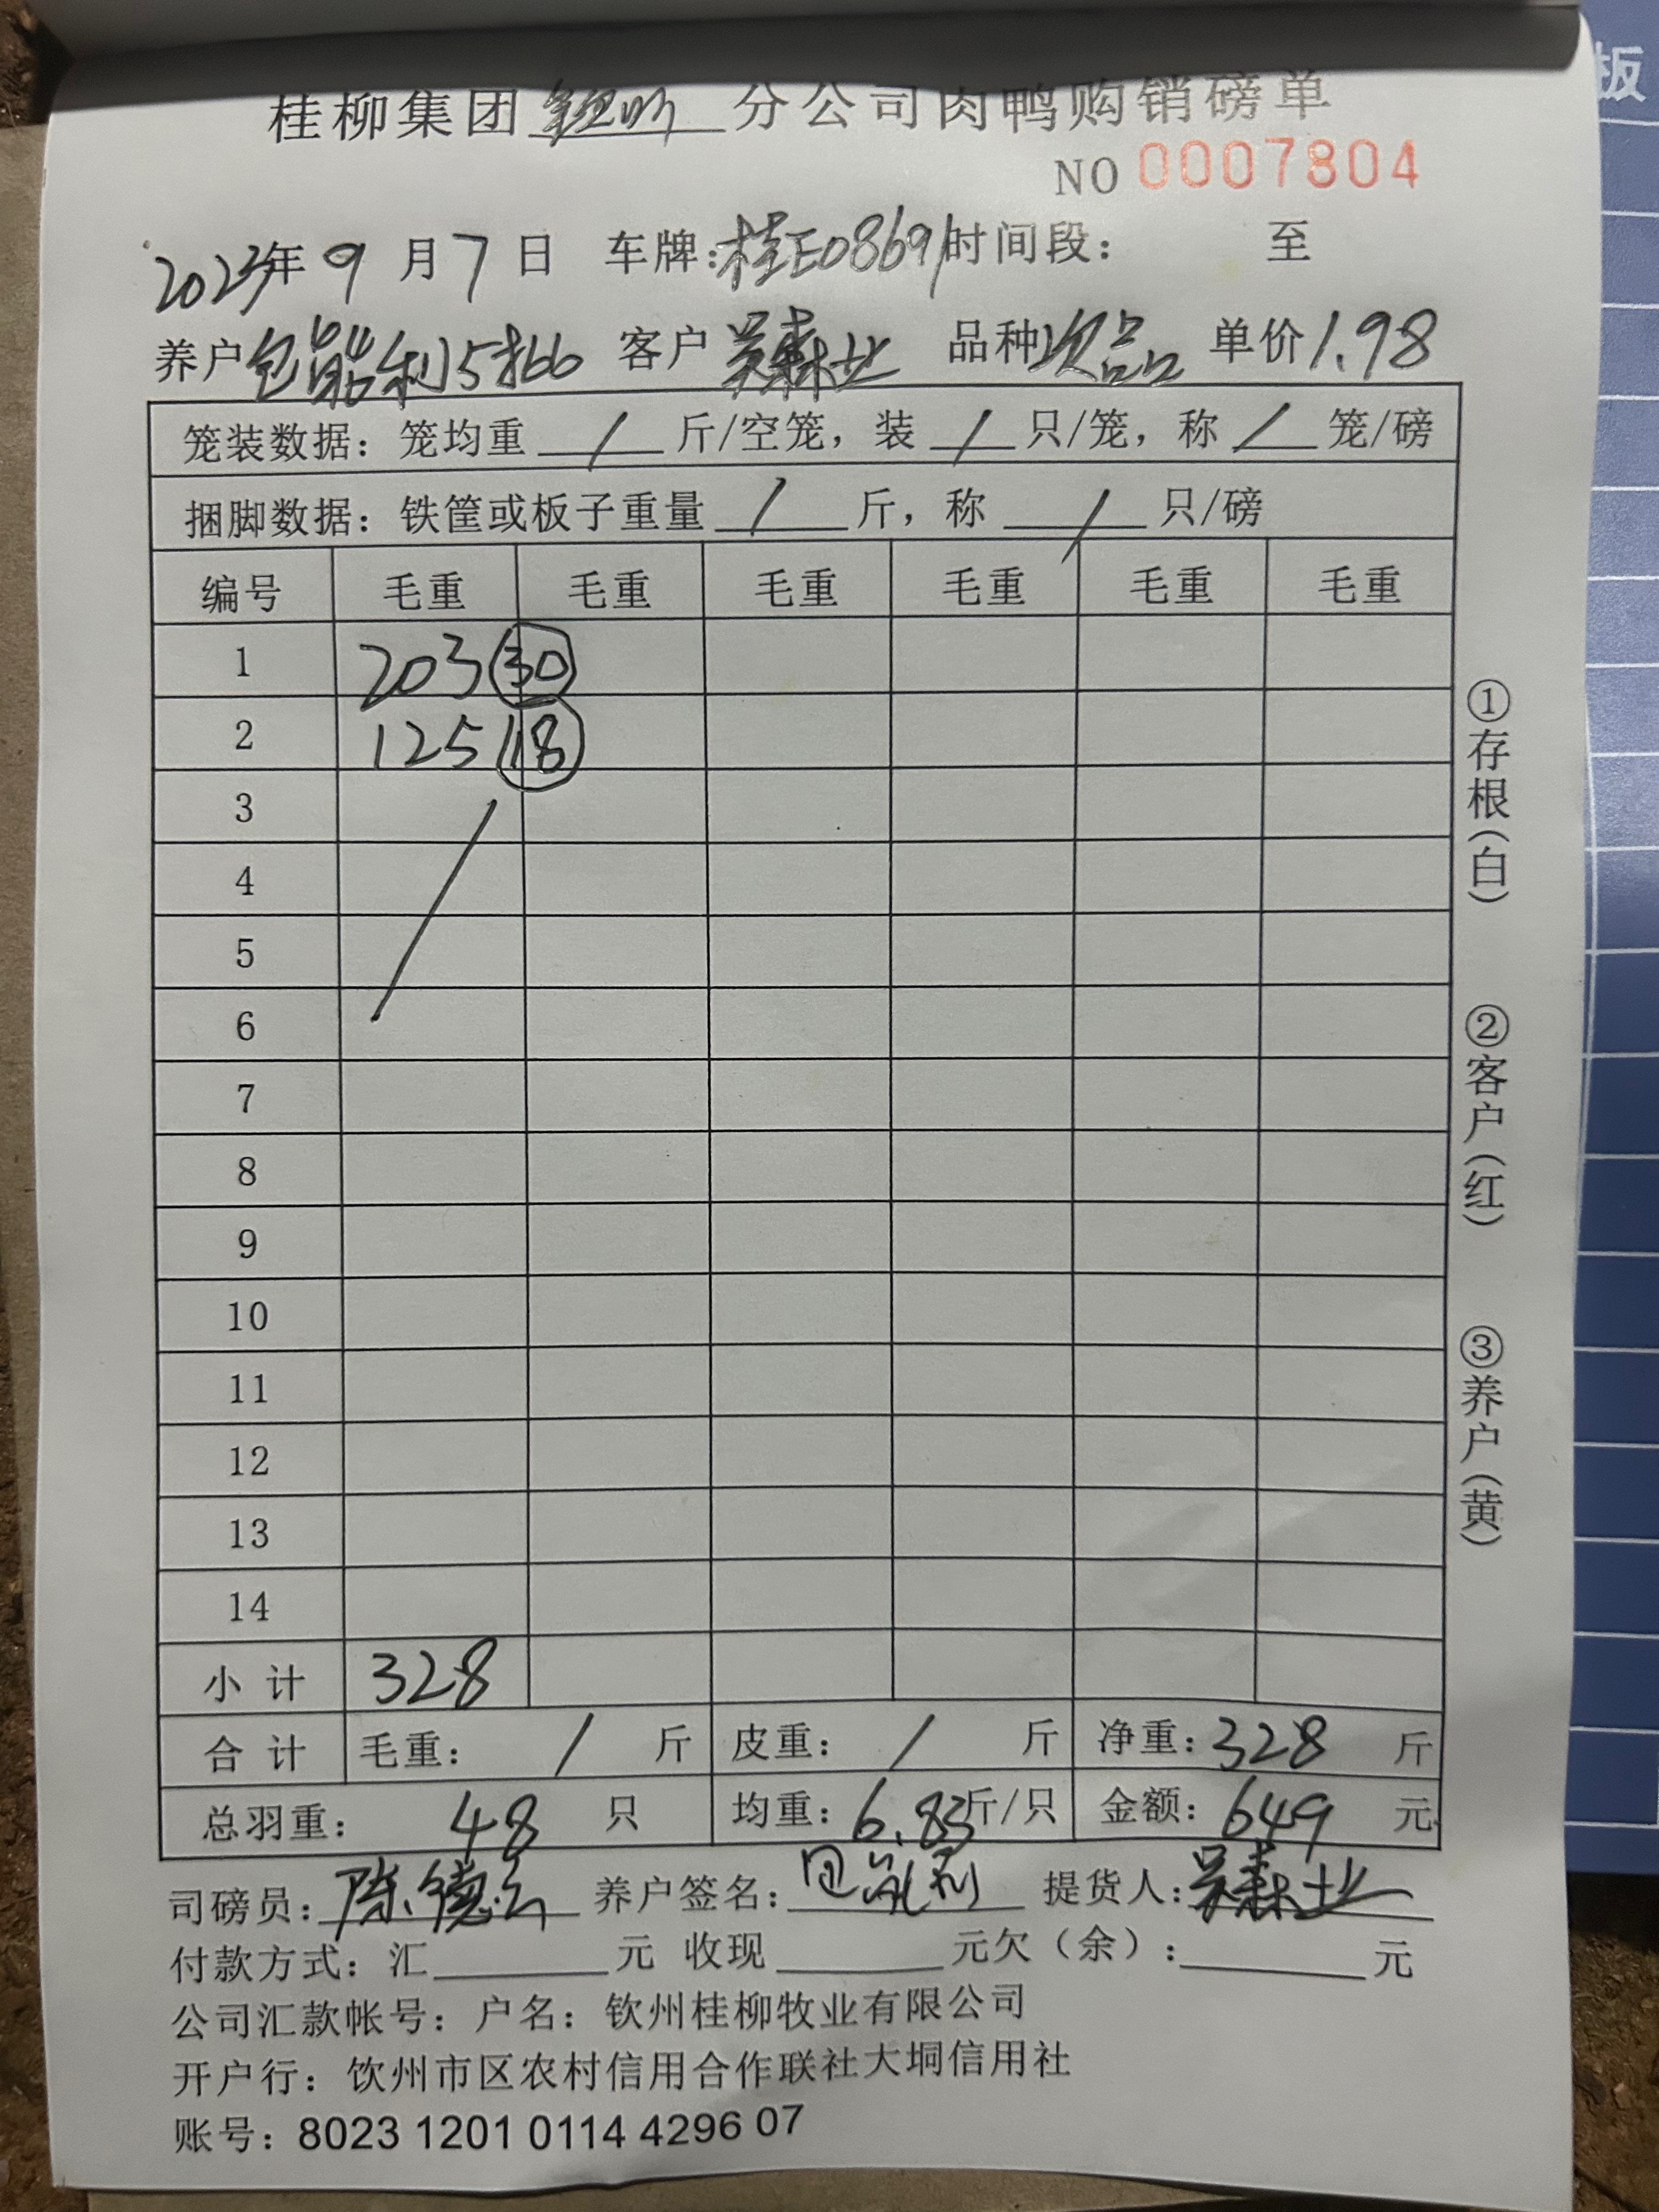 板
桂柳集团 钦州 分公司肉鸭购销磅单
NO 0007804
2023年 9 月 7 日 车牌:桂E08691 时间段: 至
养户 包能利5批 客户 吴森业 品种 次品 单价 1.98
笼装数据: 笼均重 / 斤/空笼, 装 / 只/笼, 称 / 笼/磅
捆脚数据: 铁筐或板子重量 / 斤, 称 / 只/磅
编号 毛重 毛重 毛重 毛重 毛重 毛重
1 203 30
2 125 18
3
4
5
6
7
8
9
10
11
12
13
14
小 计 328
合 计 毛重: / 斤 皮重: / 斤 净重: 328 斤
总羽重: 48 只 均重: 6.83 斤/只 金额: 649 元
司磅员: 陈德云 养户签名: 包能利 提货人: 吴森业
付款方式: 汇 元 收现 元欠(余): 元
公司汇款帐号: 户名: 钦州桂柳牧业有限公司
开户行: 钦州市区农村信用合作联社大垌信用社
账号: 8023 1201 0114 4296 07
①存根(白)
②客户(红)
③养户(黄)